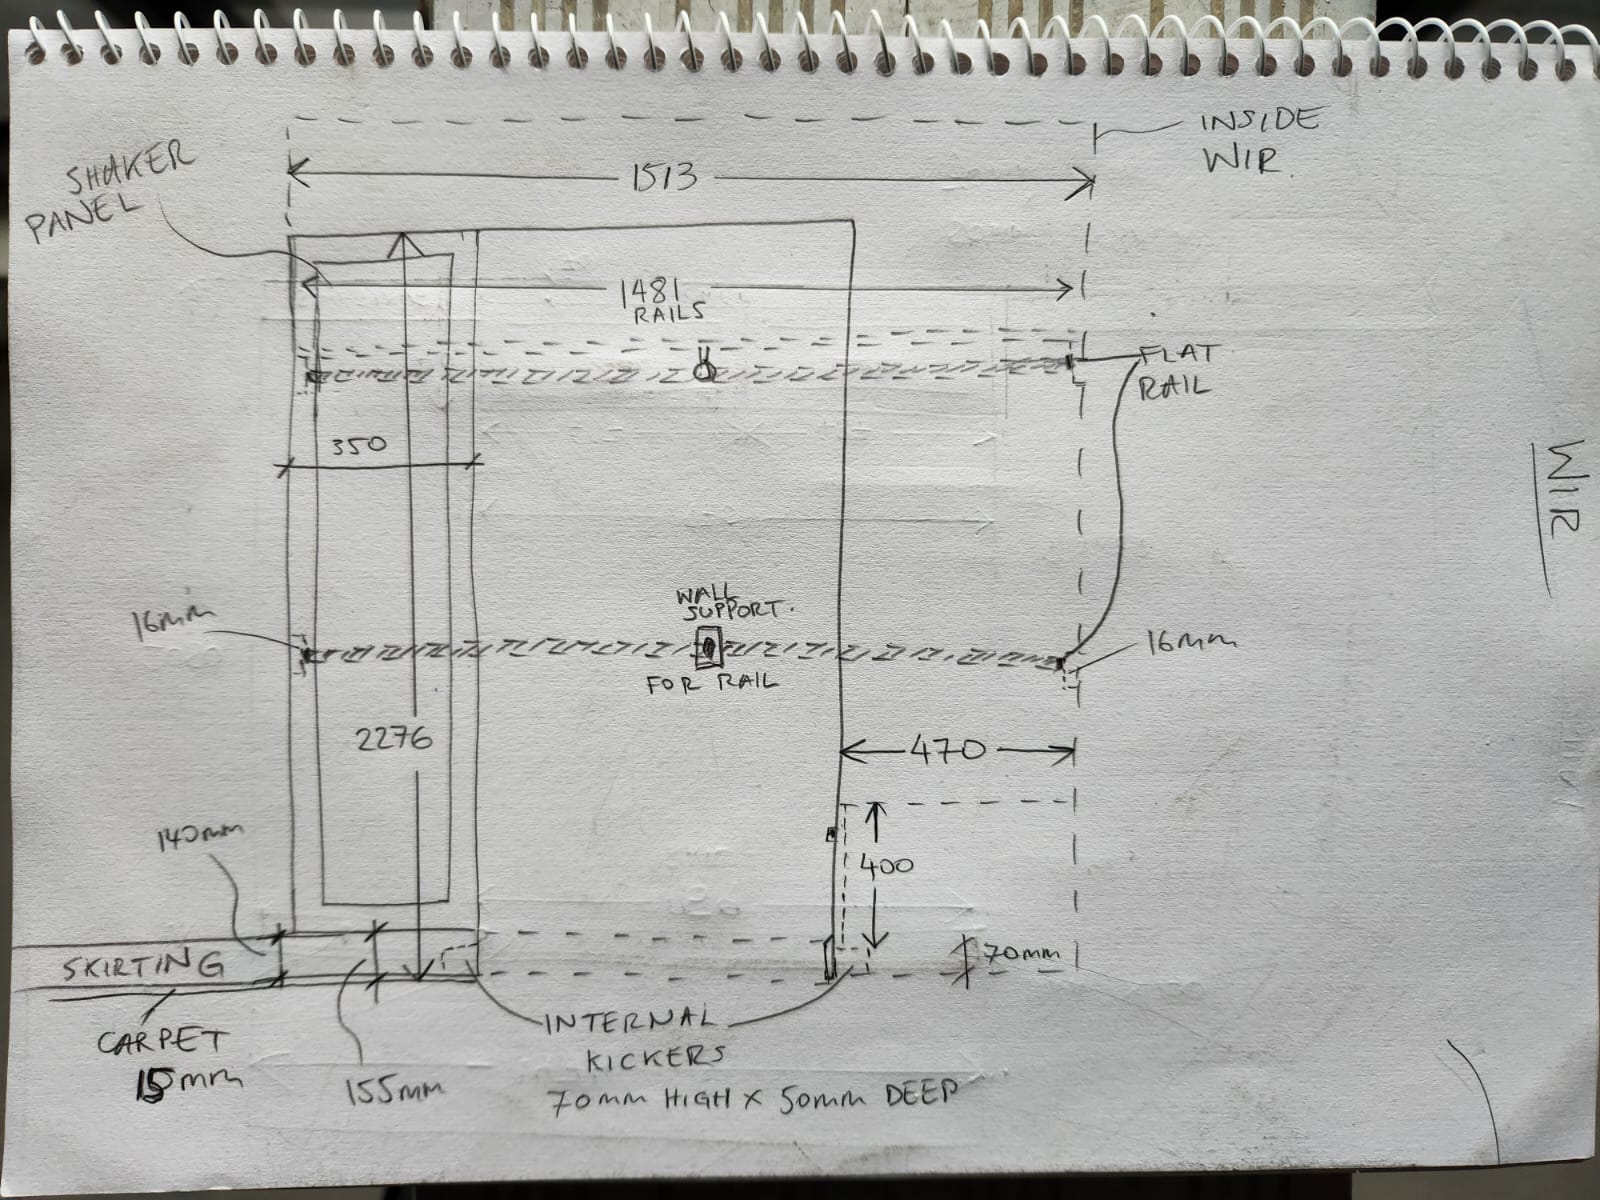 INSIDE
WIR.
SHAKER
PANEL
1513
1481
RAILS
FLAT
RAIL
350
WIR
WALL
SUPPORT.
FOR RAIL
16mm
16mm
2276
470
140mm
400
SKIRTING
70mm
CARPET
15mm
155mm
INTERNAL
KICKERS
70mm HIGH x 50mm DEEP